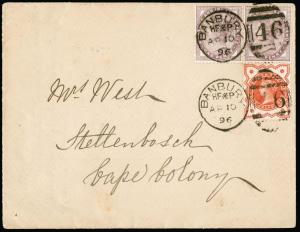 BANBURY
46
AP 10
96
BANBURY
6
AP 10
96
Mrs West
Stellenbosch
Cape Colony